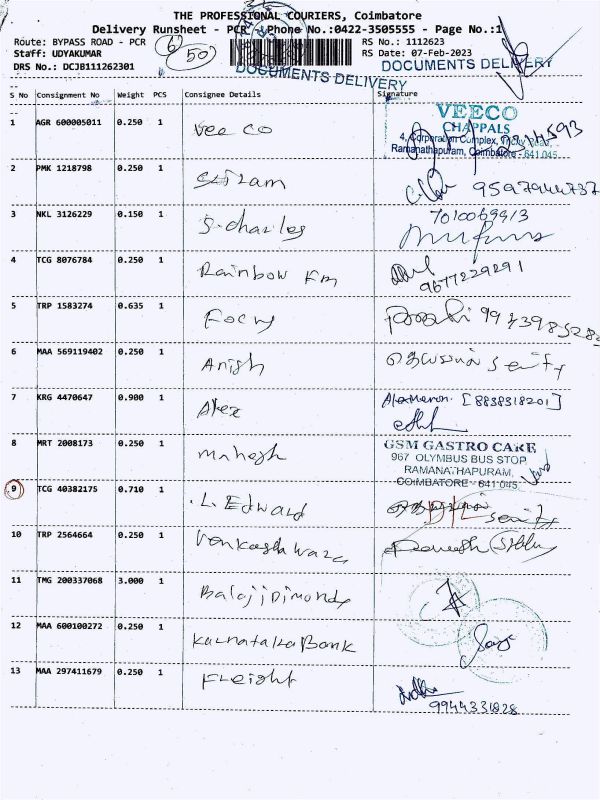 THE PROFESSIONAL COURIERS, Coimbatore
Delivery Runsheet - PCR - Phone No.:0422-3505555 - Page No.:1
Route: BYPASS ROAD - PCR
Staff: UDYAKUMAR
DRS No.: DCJB111262301
6/50
RS No.: 1112623
RS Date: 07-Feb-2023
DOCUMENTS DELIVERY
DOCUMENTS DELIVERY
S No Consignment No Weight PCS Consignee Details Signature
1 AGR 600005011 0.250 1 Vee co
VEECO
CHAPPALS
4, Corporation Complex, Trichy Road,
Ramanathapuram, Coimbatore - 641 045.
2 PMK 1218798 0.250 1 Sriram 9597944737
3 NKL 3126229 0.150 1 S. Charles 7010069913
4 TCG 8076784 0.250 1 Rainbow Fm 9677229291
5 TRP 1583274 0.635 1 Focus
6 MAA 569119402 0.250 1 Anish
7 KRG 4470647 0.900 1 Alex [8838318201]
8 MRT 2008173 0.250 1 Mahesh
GSM GASTRO CARE
967 OLYMBUS BUS STOP,
RAMANATHAPURAM,
COIMBATORE - 641 045.
9 TCG 40382175 0.710 1 L. Edward
10 TRP 2564664 0.250 1
11 TMG 200337068 3.000 1 Balaji Dimonds
12 MAA 600100272 0.250 1 Karnataka Bank
13 MAA 297411679 0.250 1 Freight
9944331828